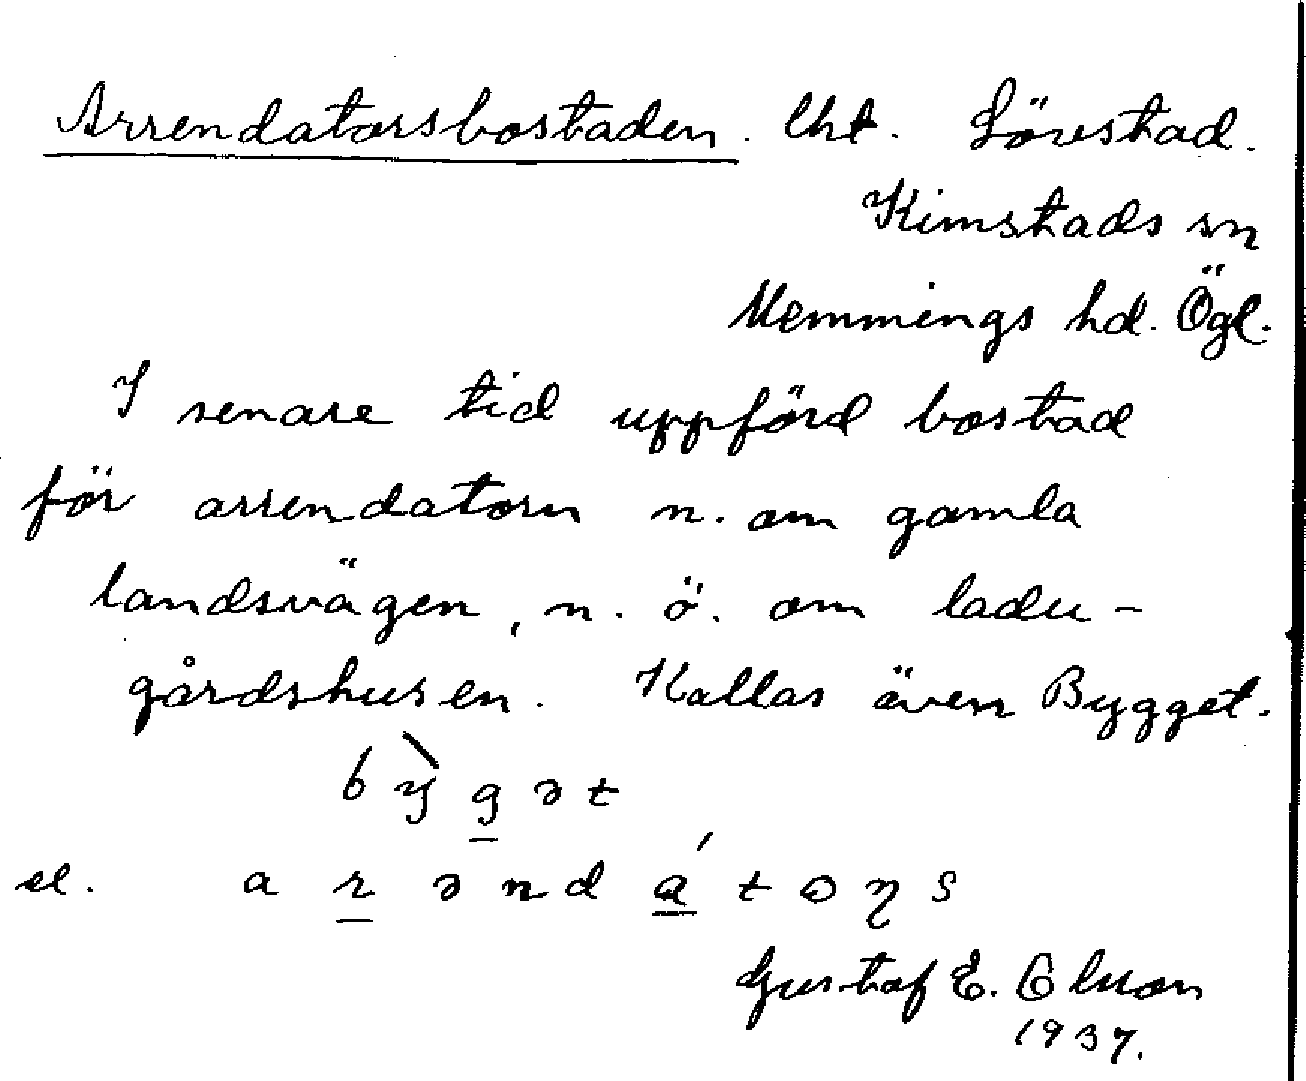 Arrendatorsbostaden. lht. Lövestad.
Kimstads sn
Memmings hd. Ögl.
I senare tid uppförd bostad
för arrendatorn n. om gamla
landsvägen, n. ö. om ladu-
gårdshusen. Kallas även Bygget.
bỳgət
el. arəndátoꞃs
Gustaf E.
1937.